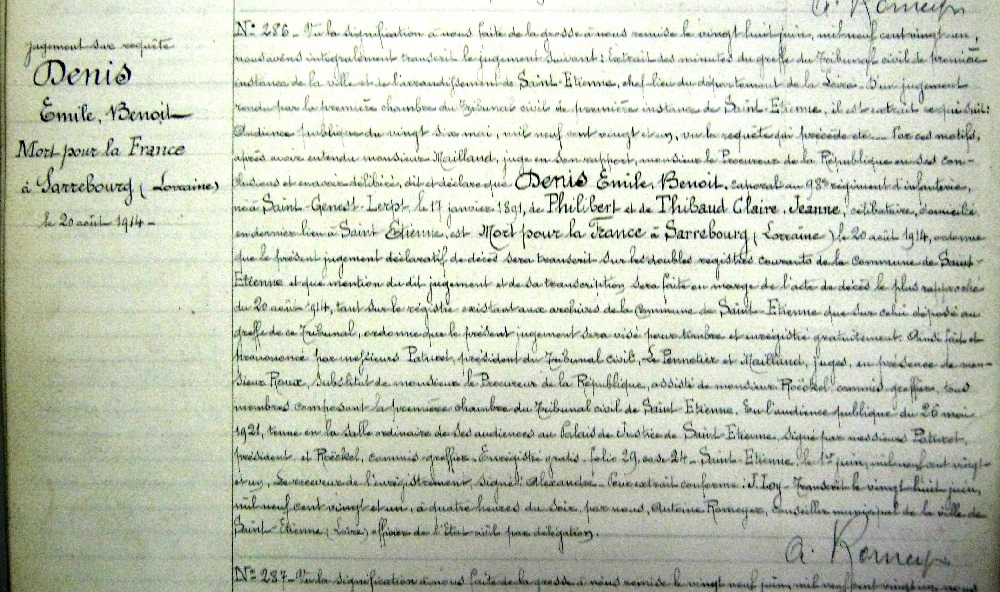 A. Romeyer
jugement sur requête
Denis
Emile, Benoit
Mort pour la France
à Sarrebourg (Lorraine)
le 20 août 1914 -
N° 286 - Vu la signification à nous faite de la grosse à nous remise le vingt huit juin, mil neuf cent vingt un,
nous avons intégralement transcrit le jugement suivant : Extrait des minutes du greffe du Tribunal civil de première
instance de la ville et de l'arrondissement de Saint-Etienne, chef-lieu du département de la Loire - D'un jugement
rendu par la première chambre du Tribunal civil de première instance de Saint-Etienne, il est extrait ce qui suit :
Audience publique du vingt six mai, mil neuf cent vingt et un, vu la requête qui précède etc - Par ces motifs,
après avoir entendu monsieur Mailland, juge en son rapport, monsieur le Procureur de la République en ses con-
clusions et en avoir délibéré, dit et déclare que Denis Emile, Benoit, caporal au 98e régiment d'infanterie,
né à Saint-Genest-Lerpt, le 17 janvier 1891, de Philibert et de Thibaud Claire, Jeanne, célibataire, domicilié
en dernier lieu à Saint-Etienne, est Mort pour la France à Sarrebourg (Lorraine) le 20 août 1914, ordonne
que le présent jugement déclaratif de décès sera transcrit sur les doubles registres courants de la Commune de Saint-
Etienne et que mention du dit jugement et de sa transcription sera faite en marge de l'acte de décès le plus rapproché
du 20 août 1914, tant sur le registre existant aux archives de la Commune de Saint-Etienne que sur celui déposé au
greffe de ce Tribunal, ordonne que le présent jugement sera visé pour timbre et enregistré gratuitement. Ainsi fait et
prononcé par messieurs Paturet, président du Tribunal civil, Le Pennetier et Mailland, juges, en présence de mon-
sieur Roux, substitut de monsieur le Procureur de la République, assisté de monsieur Roëckel, commis-greffier, tous
membres composant la première chambre du Tribunal civil de Saint-Etienne. En l'audience publique du 26 mai
1921, tenue en la salle ordinaire de ses audiences au Palais de Justice de Saint-Etienne. Signé par messieurs Paturet,
président, et Roëckel, commis-greffier. Enregistré gratis. folio 29, case 24 - Saint-Etienne, le 1er juin, mil neuf cent vingt-
et un, Le receveur de l'enregistrement, signé : Alexandre - Pour extrait conforme : J. Loy - Transcrit le vingt huit juin,
mil neuf cent vingt et un, à quatre heures du soir, par nous, Antoine Romeyer, Conseiller municipal de la ville de
Saint-Etienne (Loire) officier de l'Etat civil par délégation.
A. Romeyer
N° 287 - Vu la signification à nous faite de la grosse à nous remise le vingt neuf juin, mil neuf cent vingt un, nous